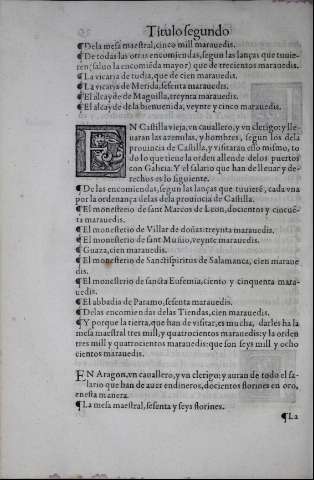 Titulo segundo
¶ De la mesa maestral, cinco mill marauedis.
¶ De todas las otras encomiendas, segun las lanças que tuuie-
ren (saluo la encomiẽda mayor) que de trecientos marauedis.
¶ La vicaria de tudia, que de cien marauedis.
¶ La vicaria de Merida, sesenta marauedis.
¶ El alcayde de Maguilla, treynta marauedis.
¶ El alcayde de la bienuenida, veynte y cinco marauedis.
EN Castilla vieja, vn cauallero, y vn clerigo: y lle
uaran las azemilas, y hombres, segun los dela
prouincia de Castilla, y visitaran esso mismo, to
do lo que tiene la orden allende delos puertos
con Galicia. Y el salario que han de lleuar y de-
rechos es lo siguiente.
¶ De las encomiendas, segun las lanças que tuuierẽ, cada vna
por la ordenança delas dela prouincia de Castilla.
¶ El monesterio de sant Marcos de Leon, docientos y cincuẽ-
ta marauedis.
¶ El monesterio de Villar de doñas: treynta marauedis.
¶ El monesterio de sant Muñio, veynte marauedis.
¶ Guaza, cien marauedis.
¶ El monesterio de Sanctispiritus de Salamanca, cien maraue
dis.
¶ El monesterio de sancta Eufemia, ciento y cinquenta mara-
uedis.
¶ El abbadia de Paramo, sesenta marauedis.
¶ Delas encomiendas delas Tiendas, cien marauedis.
¶ Y porque la tierra, que han de visitar, es mucha, darles ha la
mesa maestral tres mill, y quatrocientos marauedis: y la orden
tres mill y quatrocientos marauedis: que son seys mill y ocho
cientos marauedis.
EN Aragon, vn cauallero, y vn clerigo: y auran de todo el sa-
lario que han de auer en dineros, docientos florines en oro,
enesta manera.
¶ La mesa maestral, sesenta y seys florines.
¶ La